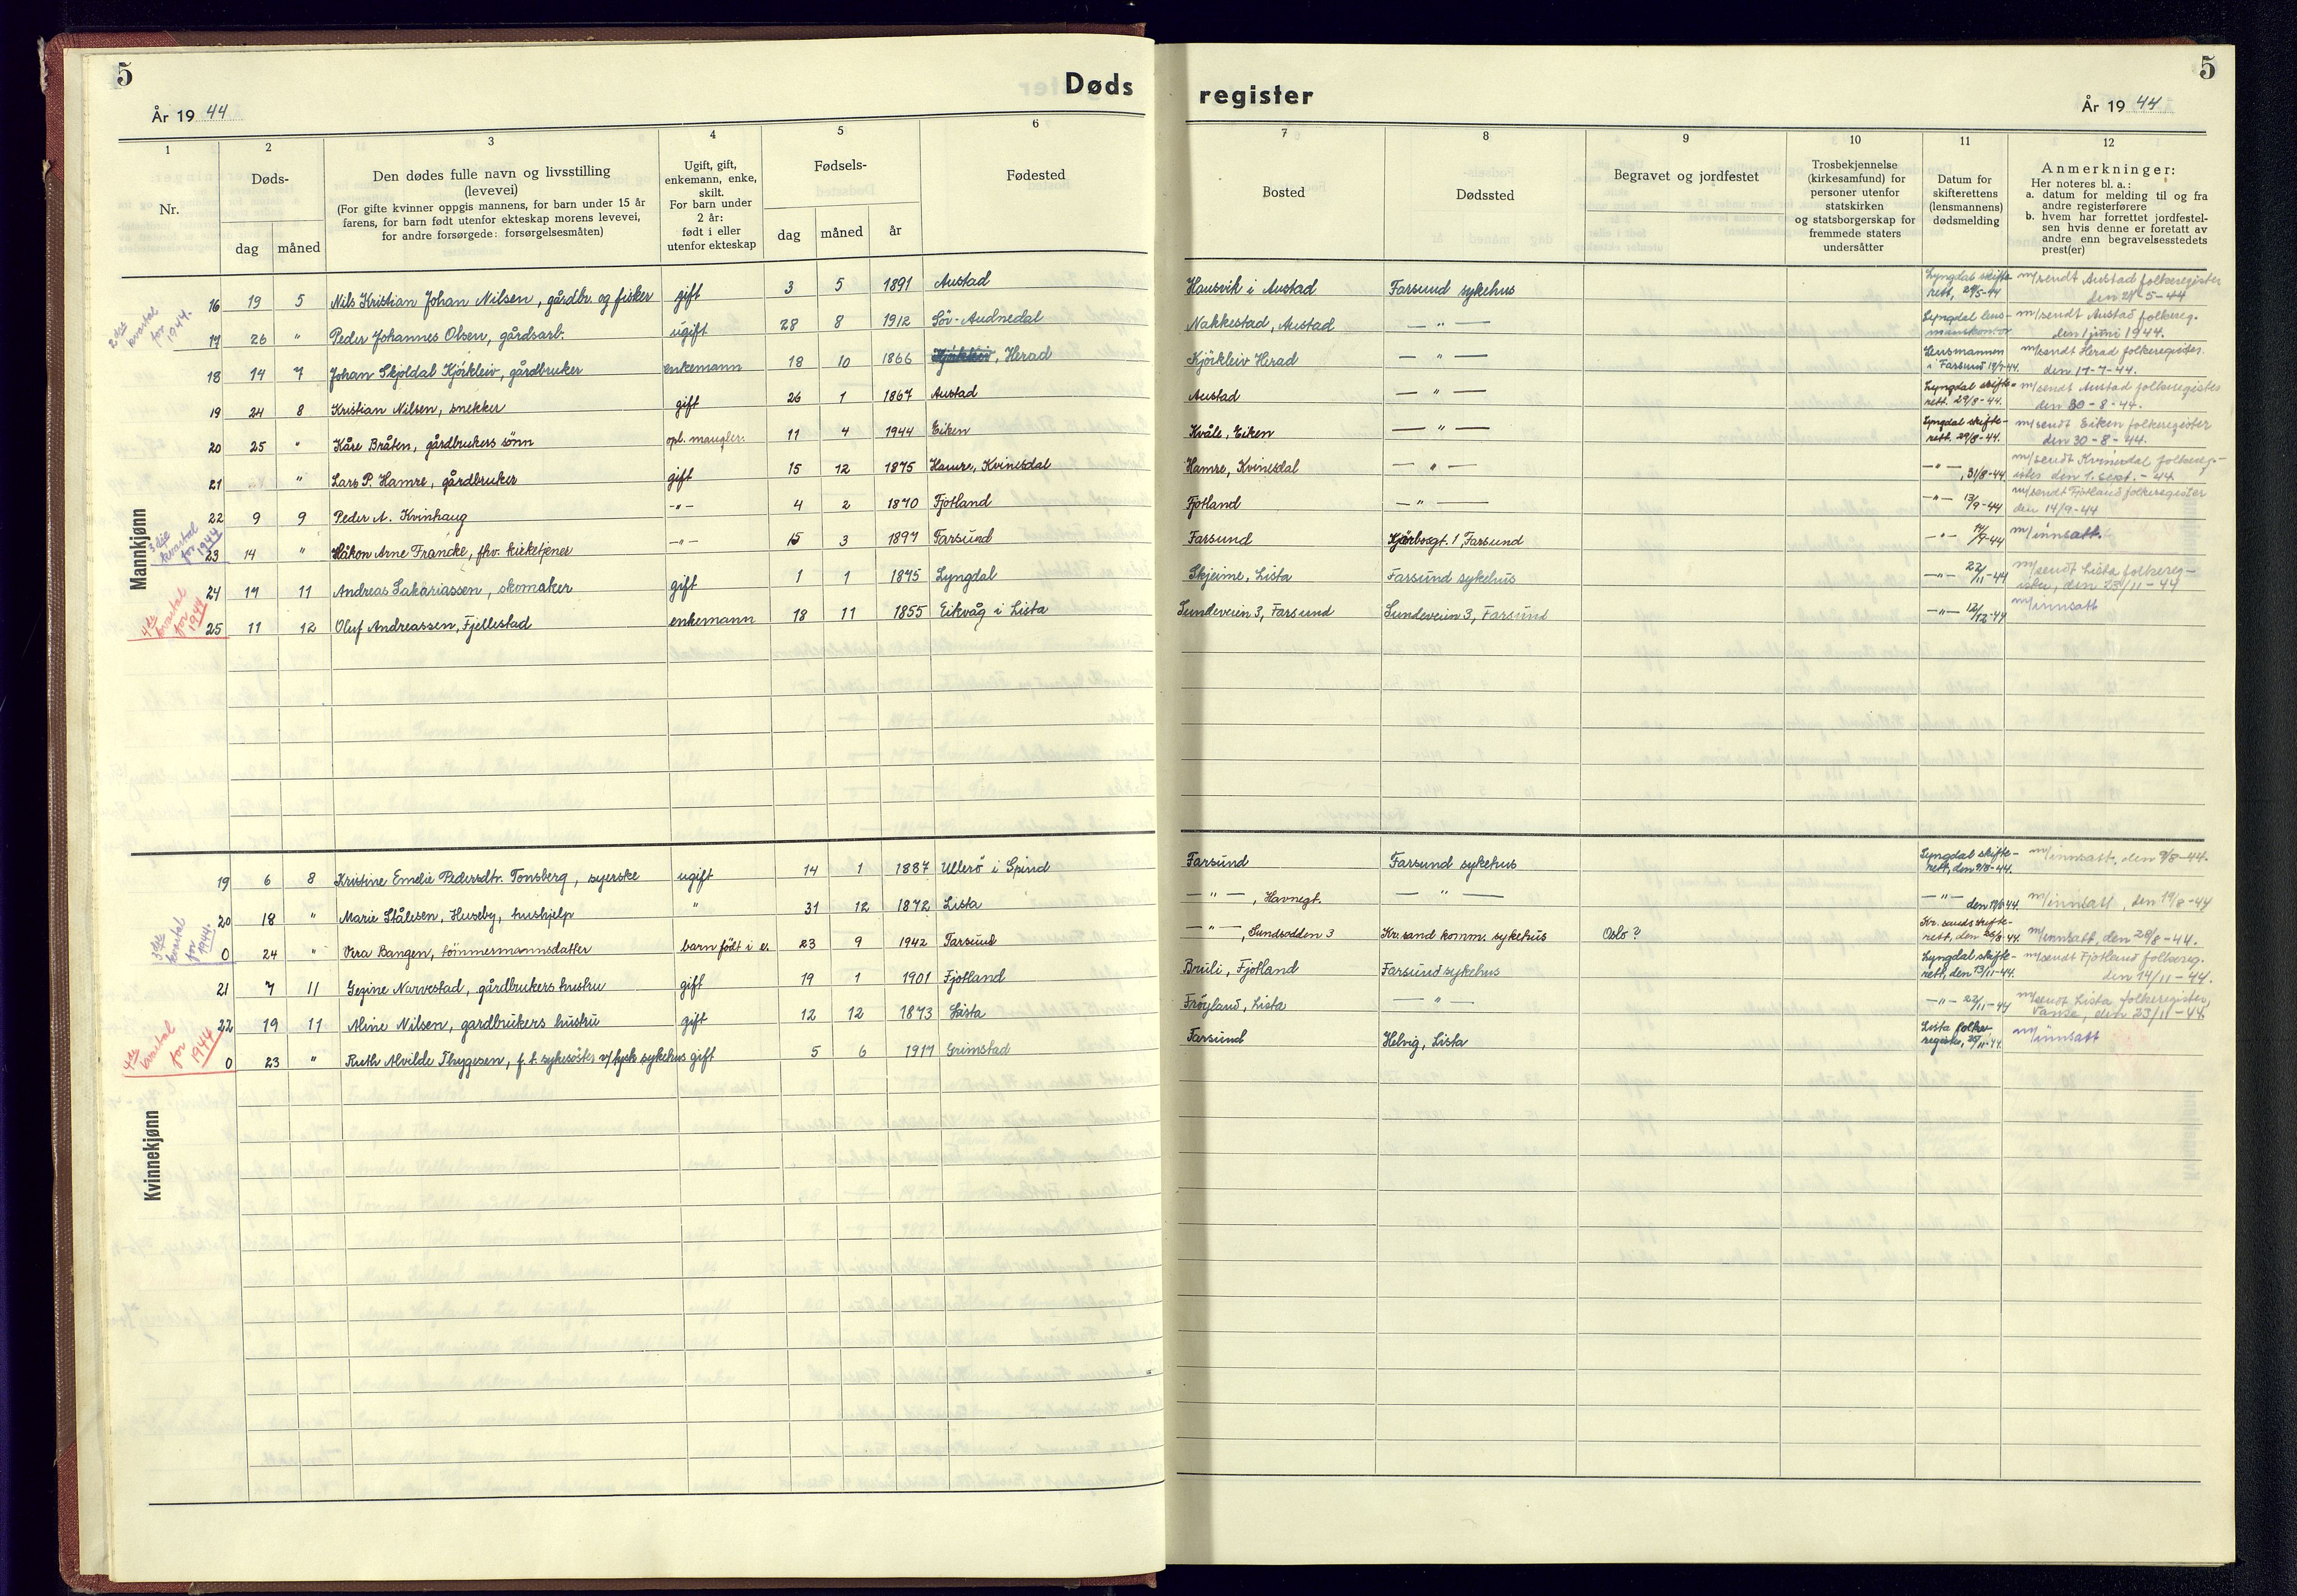 5
Døds
register
5
År 19 44
År 19 44
1
2
3
4
5
6
7
8
9
10
11
12
Nr.
Døds-
dag
måned
Den dødes fulle navn og livsstilling
(levevei)
(For gifte kvinner oppgis mannens, for barn under 15 år
farens, for barn født utenfor ekteskap morens levevei,
for andre forsørgede: forsørgelsesmåten)
Ugift, gift,
enkemann, enke,
skilt.
For barn under
2 år:
født i eller
utenfor ekteskap
Fødsels-
dag
måned
år
Fødested
Bosted
Dødssted
Begravet og jordfestet
Trosbekjennelse
(kirkesamfund) for
personer utenfor
statskirken
og statsborgerskap for
fremmede staters
undersåtter
Datum for
skifterettens
(lensmannens)
dødsmelding
Anmerkninger:
Her noteres bl. a.:
a. datum for melding til og fra
andre registerførere
b. hvem har forrettet jordfestel-
sen hvis denne er foretatt av
andre enn begravelsesstedets
prest(er)
Mannkjønn
2 det kvartal for 1944.
16 19 5 Nils Kristian Johan Nilsen, gårdbr. og fisker gift 3 5 1891 Austad Hausvik i Austad Farsund sykehus Lyngdal skifte-rett, 24/5-44 m/sendt Austad folkeregister den 24-5-44
17 26 " Peder Johannes Olsen, gårdsarb. ugift 28 8 1912 Sör-Audnedal Nakkestad, Austad — " — Lyngdal lens-manskontor m/sendt Austad folkereg. den 1 juni 1944.
18 14 7 Johan Skjoldal Kjörkleiv, gårdbruker enkemann 18 10 1866 , Herad Kjörkleiv Herad — " — Lensmannen i Farsund 14/7-44. m/sendt Herad folkeregister. den 17-7-44.
19 24 8 Kristian Nilsen, snekker gift 26 1 1867 Austad Austad — " — Lyngdal skifte-rett. 29/8-44. m/sendt Austad folkeregister den 30-8-44.
20 25 " Kåre Bråten, gårdbrukers sönn opl. mangler. 11 4 1944 Eiken Kvåle, Eiken — " — Lyngdal skifte-rett. 29/8-44. m/sendt Eiken folkeregister den 30-8-44.
21 " Lars P. Hamre, gårdbruker gift 15 12 1875 Hamre, Kvinesdal Hamre, Kvinesdal — " — — " — , 31/8-44 m/sendt Kvinesdal folkereg-ister den 1. sept. -44
22 9 9 Peder A. Kvinhaug — " — 4 2 1870 Fjotland Fjotland — " — — " — 13/9-44 m/sendt Fjotland folkeregister den 14/9-44
3 dje kvartal for 1944
23 14 " Håkon Arne Francke, fhv. kirketjener — " — 15 3 1897 Farsund Farsund Kjörbogt. 1, Farsund — " — m/innsatt.
24 17 11 Andreas Sakariassen, skomaker gift 1 1 1875 Lyngdal Skjeime, Lista Farsund sykehus — " — 22/11-44 m/sendt Lista folkereg-ister, den 23/11-44
4 de kvartal for 1944
25 11 12 Oluf Andreassen, Fjellestad enkemann 18 11 1855 Eikvåg i Lista Sundeveien 3, Farsund Sundeveien 3, Farsund — " — 12/12-44 m/innsatt
Kvinnekjønn
19 6 8 Kristine Emelie Pedersdtr. Tonsberg, syerske ugift 14 1 1887 Ullerö i Spind Farsund Farsund sykehus Lyngdal skifte-rett, den 9/8-44. m/innsatt, den 9/8-44.
20 18 " Marie Stålesen, Huseby, hushjelp " 31 12 1872 Lista — " — , Havnegt. — " — — " — den 19/8-44. m/innsatt, den 19/8-44
3 dje kvartal for 1944.
0 24 " Vera Bangen, tömmermannsdatter barn födt i e. 23 9 1942 Farsund — " — , Sundsodden 3 Kr.sand komm. sykehus Oslo ? Kr. sands skifte-rett, den 26/8-44. m/innsatt, den 28/8-44.
21 7 11 Gezine Narvestad, gårdbrukers hustru gift 19 1 1901 Fjotland Bruli, Fjotland Farsund sykehus Lyngdal skifte-rett, den 13/11-44. m/sendt Fjotland folkereg. den 14/11-44.
22 19 11 Aline Nilsen, gardbrukers hustru gift 12 12 1873 Lista Fröyland, Lista — " — — " — 22/11-44 m/sendt Lista folkeregister, Vanse, den 23/11-44.
4 de kvartal for 1944
0 23 " Ruth Alvilde Thygesen, f. t. sykesöster v/tysk sykehus gift 5 6 1917 Grimstad Farsund Helvig, Lista Lista folke-register, 25/11-44. m/innsatt